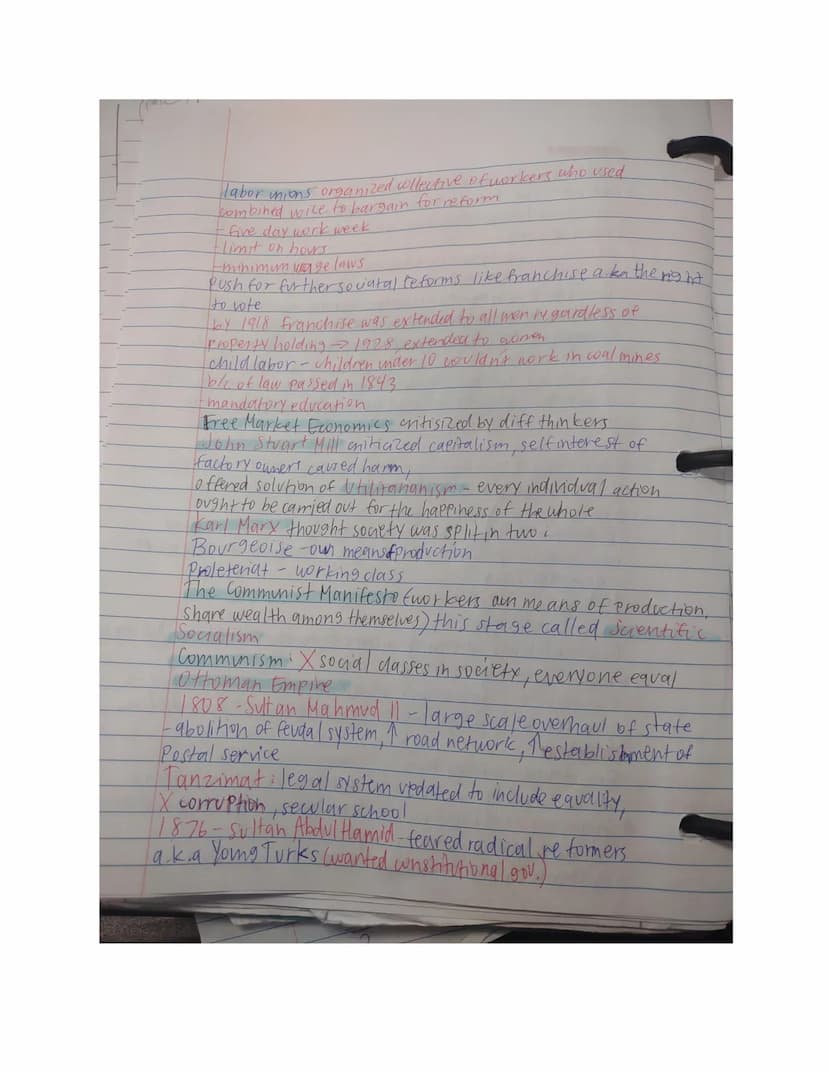 labor unions organized collective of workers who used
combined voice to bargain for reform
- five day work week
- limit on hours
- minimum wage laws
Push for further societal reforms like franchise a.k.a the right
to vote
by 1918 franchise was extended to all men regardless of
property holding → 1928, extended to women
child labor - children under 10 couldn't work in coal mines
b/c of law passed in 1843
- mandatory education
Free Market Economics critisized by diff thinkers
John Stuart Mill criticized capitalism, self interest of
factory owners caused harm,
offered solution of Utilitarianism - every individual action
ought to be carried out for the happiness of the whole
Karl Marx thought society was split in two:
Bourgeoise - own means of production
Proleteriat - working class
The Communist Manifesto (workers own means of production,
share wealth among themselves) this stage called Scientific
Socialism
Communism: X social classes in society, everyone equal
Ottoman Empire
1808 - Sultan Mahmud II - large scale overhaul of state
- abolition of feudal system, ↑ road network, ↑ establishment of
Postal service
Tanzimat: legal system updated to include equality,
X corruption, secular school
1876 - Sultan Abdul Hamid - feared radical reformers
a.k.a Young Turks (wanted constitutional gov.)